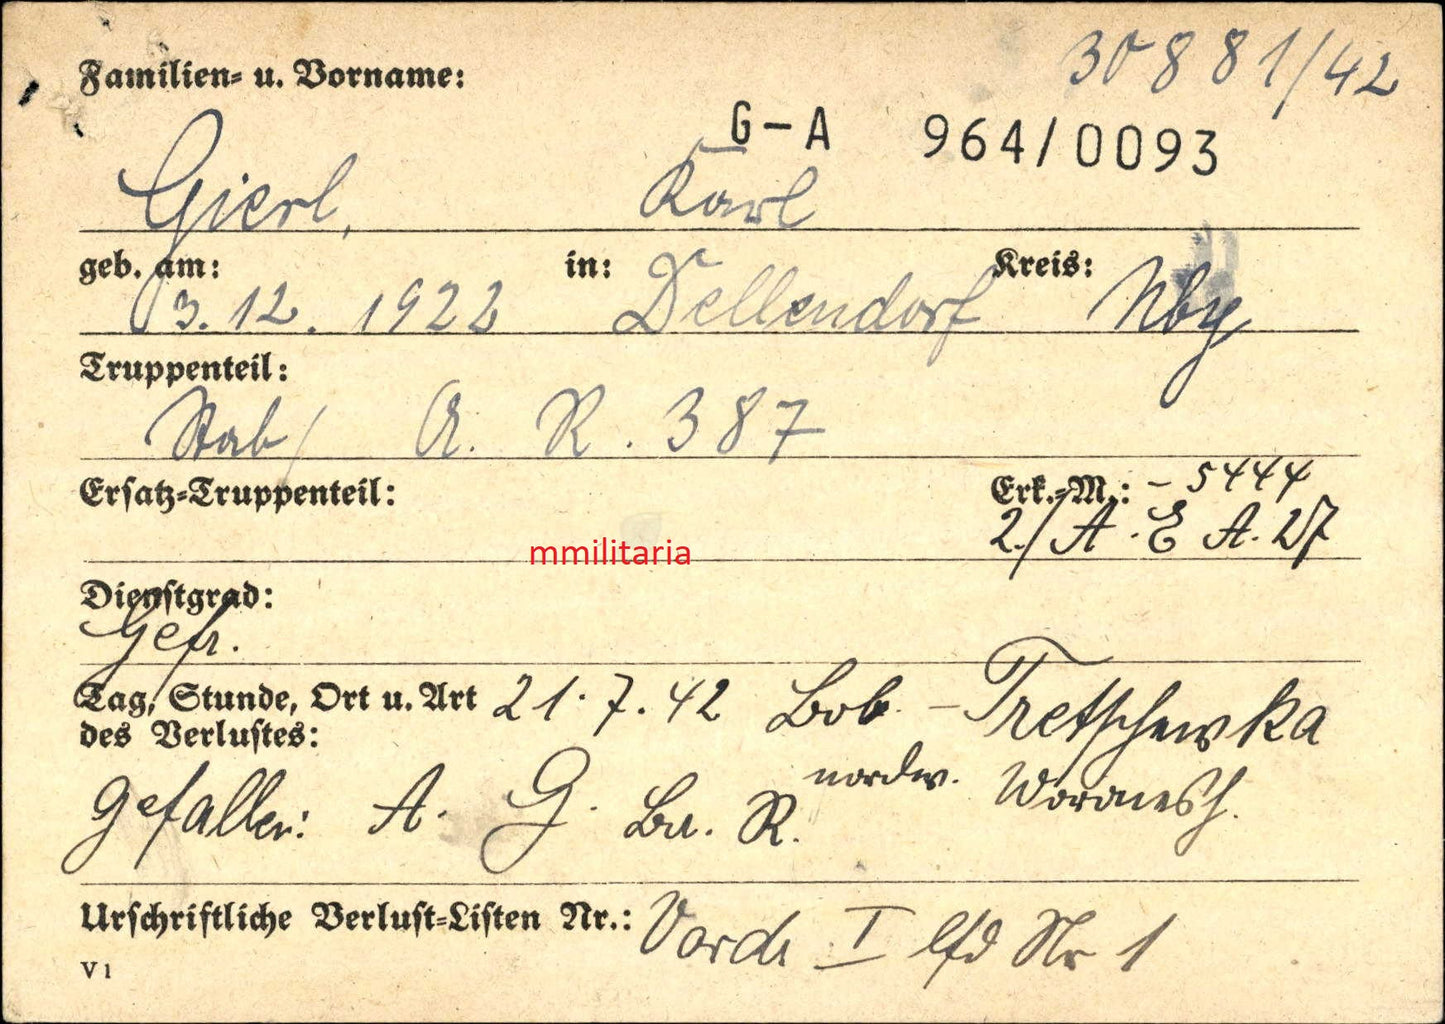 30881/42
Familien- u. Vorname:
G-A 964/0093
Gierl, Karl
geb. am: in: Kreis:
3.12.1922 Dellendorf Nby
Truppenteil:
Stab/ A. R. 387
Ersatz-Truppenteil: Erk.-M.: - 5444
2./A. E A. 27
mmilitaria
Dienstgrad:
Gefr.
Tag, Stunde, Ort u. Art 21.7.42 Bob - Tretschewka
des Verlustes: nordw. Woronesh.
gefallen: A. G. Br. R.
Urschriftliche Verlust-Listen Nr.: Vordr I lfd Nr 1
V 1